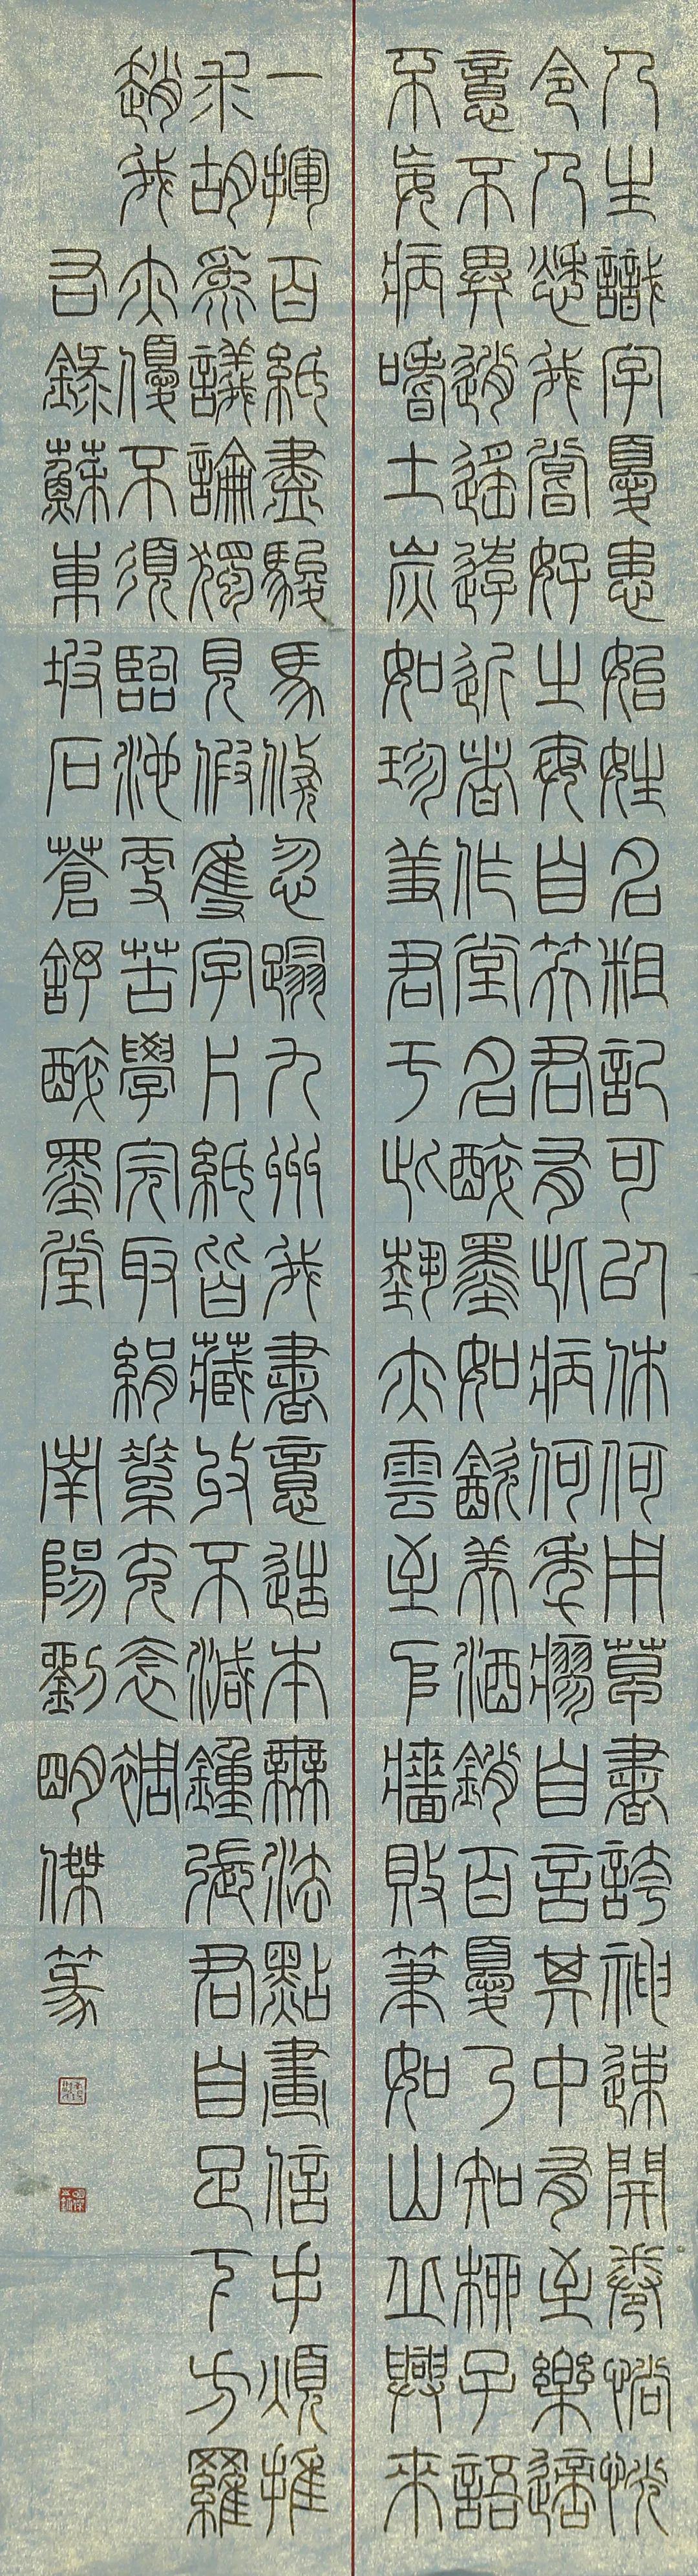 人生識字憂患始姓名粗記可以休何用草書誇神速開卷惝怳
令人愁我嘗好之每自笑君有此病何年瘳自言其中有至樂適
意不異逍遙遊近者作堂名醉墨如飲美酒銷百憂乃知柳子語
不妄病嗜土炭如珍羞君于此藝亦雲至𠂤牆敗筆如山丘興來
一揮百紙盡駿馬倏忽蹋九州我書意造本無法點畫信手煩推
求胡為議論獨見假隻字片紙皆藏收不減鍾張君自足下方羅
趙我亦優不須臨池更苦學完取絹素充衾裯
右錄蘇東坡石蒼舒醉墨堂 南陽劉明傑篆